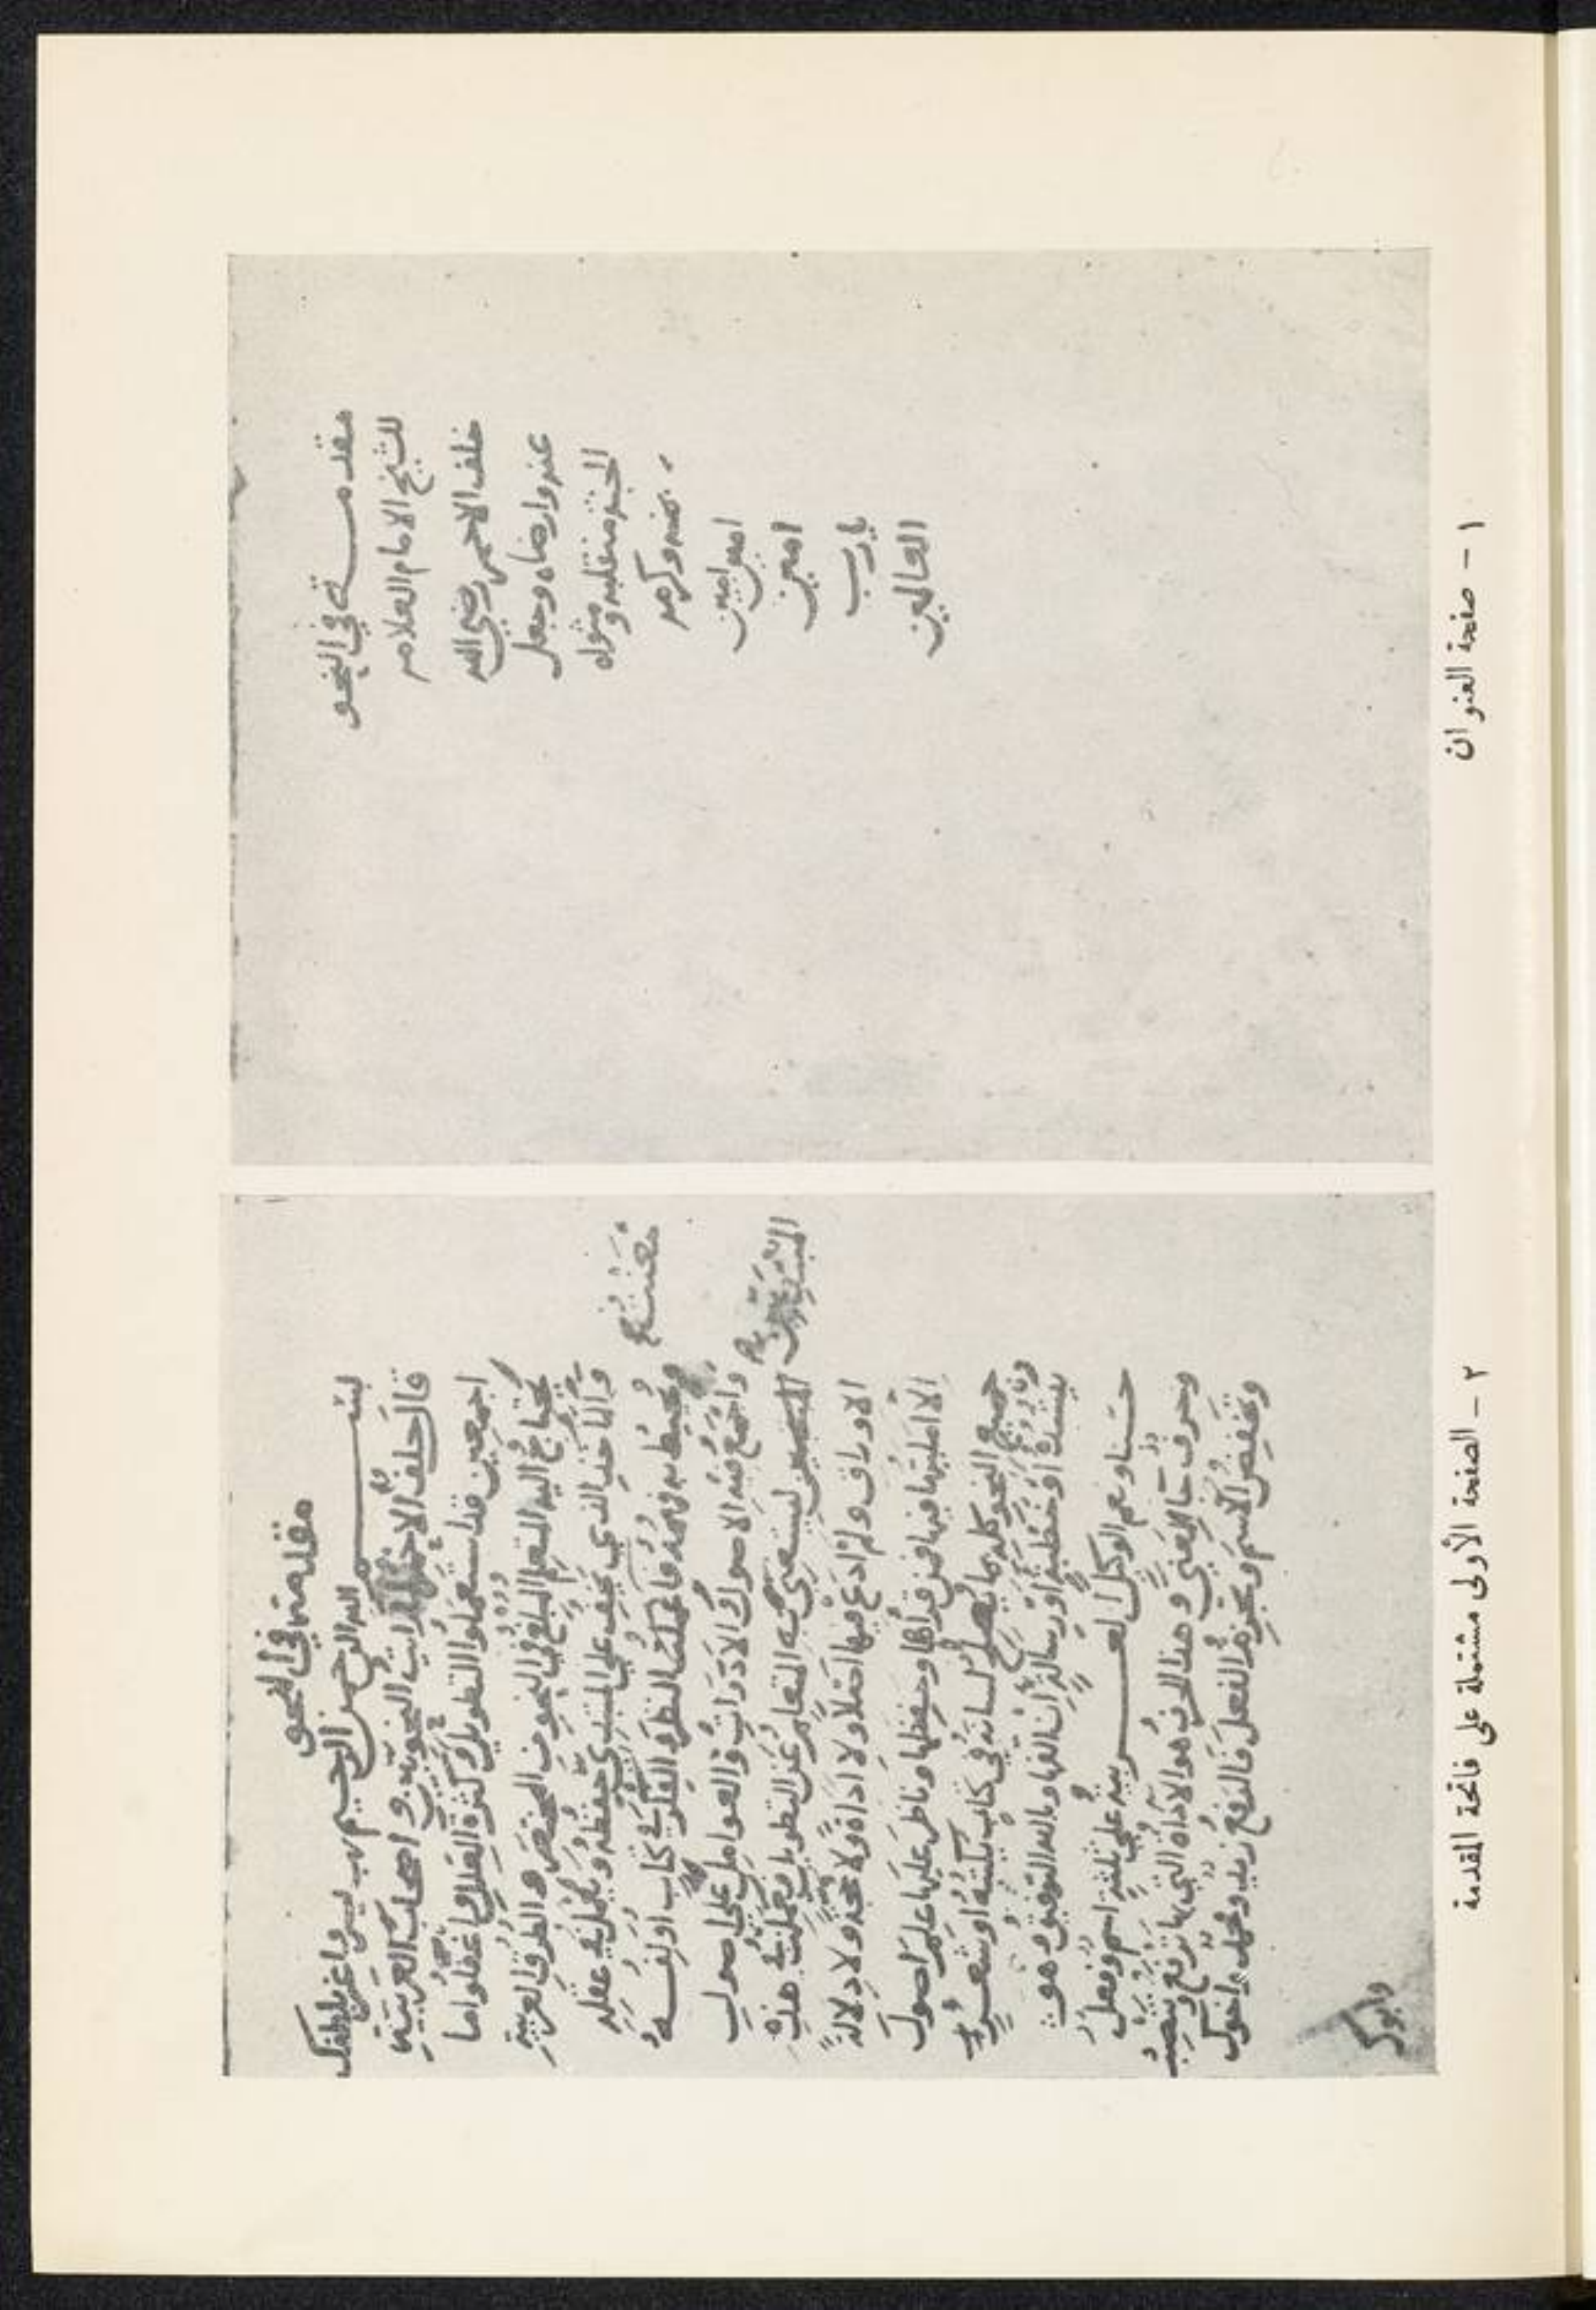 مقدمة في النحو
للشيخ الامام العلامه
خلف الاحمر رضي الله
عنه وارضاه وجعل
الجنة منقلبه ومثواه
بمنه وكرمه
امين امين
امين
يا رب
العالمين
١ - صفحة العنوان
مقدمة في النحو
بسم الله الرحمن الرحيم رب يسر واعن بلطفك
قال خلف الاحمر النحويين واصحاب العربية
اجمعين قد استعملوا التطويل وكثرة العلل واغفلوا ما
يحتاج اليه المتعلم المتبلغ في النحو من المختصر والطرق العربية
والماخذ الذي يخف على المبتدي حفظه ويعمل في عقله
ويحيط به فهمه فامعنت النظر والفكر في كتاب اولفه
واجمع فيه الاصول والادوات والعوامل على اصول
المبتدئين ليستغني به المتعلم عن التطويل فعملت هذه
الاوراق ولم ادع فيها اصلا ولا اداة ولا حجة ولا دلالة
الا امليتها فيها فمن قراها وحفظها وناظر عليها علم اصول
جميع النحو كله مما يصلح لسانه في كتاب يكتبه او شعر
ينشده او خطبة او رسالة ان الفها وبالله التوفيق وهو
حسبنا ونعم الوكيل العربية على ثلثة اسم وفعل
وحرف جا لمعنى وهذا الحرف هو الاداة التي بها ترفع وتنصب
وتخفض الاسم وتجزم الفعل فالرفع زيد ومحمد واخوك
وابوك
٢ - الصفحة الأولى مشتملة على فاتحة المقدمة